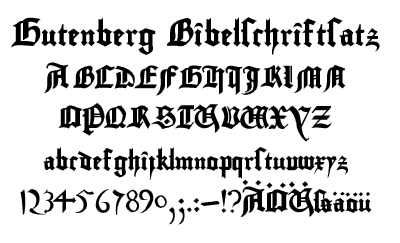 Gutenberg Bîbelſchrîftſatz
ABCDEFGHIJKLMN
OPQRSTUVWXYZ
abcdefghîjklmnopqrſtuvwxyz
1234567890,;.:–!?ÄÖÜſsäöü